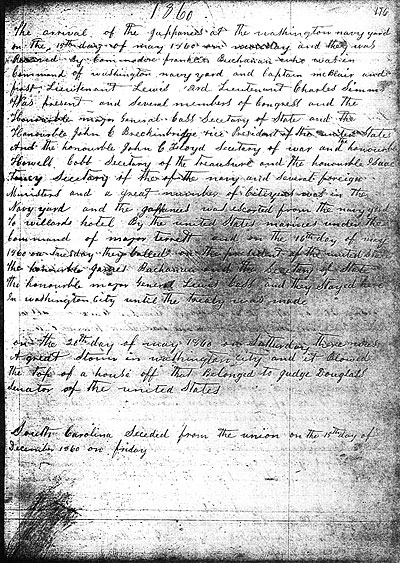 1860
176
The arrival of the Jappanes at the washington navy yard
on the 15th day of may 1860 on monday and they was
Received By Commodore franklin Buchanan who was in
Command of washington navy yard and Captain mcBlair and
first Lieutenant Lewis and Lieutenant Charles Simms
Was present and Several members of Congress and the
Honourable major General Cass Secretary of State and the
Honourable John C Breckinbridge vice President of the united States
and the honourable John C Floyd Secretary of war and honourable
Howell Cobb Secretary of the treasure and the honourable Isaac
Toucy Secretary of the of the navy and Several foreign
Ministers and a great number of Cetizens was in the
Navy yard and the Jappanes was escorted from the navy yard
To willards hotel By the united States marines under the
Command of major and on the 16th day of may
1860 on tuesday they Called on the president of the united States
the honorable James Buchannan and the Secretary of State
the honourable major General Lewis Cass and they Stayed here
In washington City until the treaty was made
on the 20th day of may 1860 on Satturday there was
A great Storm in washington City and it Blowed
the top of a house off that Belonged to Judge Douglass
Senator of the united States
South Carolina Seceded from the union on the 15th day of
December 1860 on friday